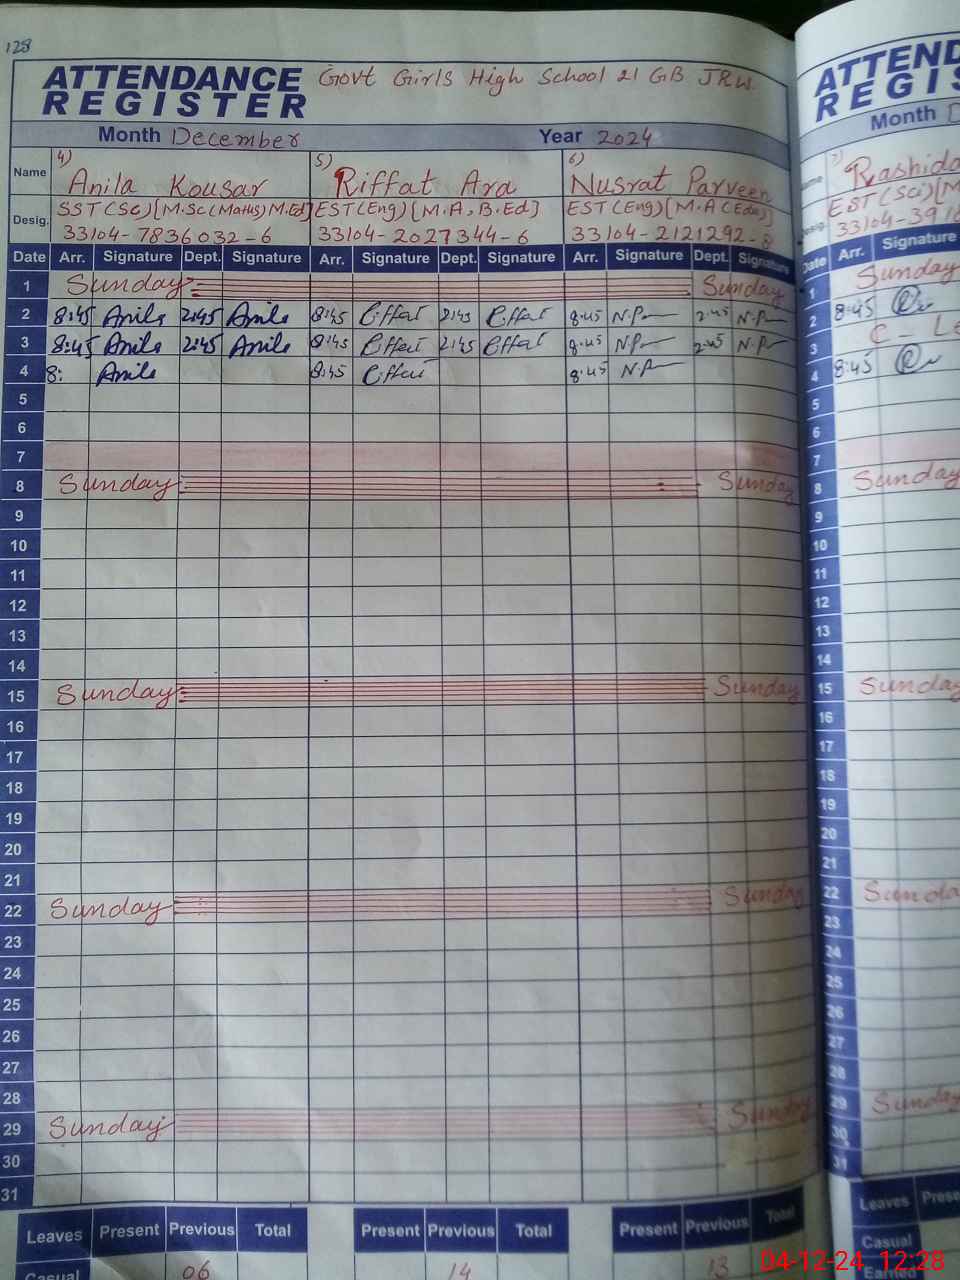 128
ATTENDANCE REGISTER Govt Girls High School 21 GB JRW.
Month December Year 2024
Name 4) Anila Kousar 5) Riffat Ara 6) Nusrat Parveen
Desig. SST(Sc)[M.Sc(Maths)M.Ed] EST(Eng)[M.A, B.Ed] EST(Eng)[M.A(Edu)]
33104-7836032-6 33104-2027344-6 33104-2121292-8
Date Arr. Signature Dept. Signature Arr. Signature Dept. Signature Arr. Signature Dept. Signature
1 Sunday Sunday
2 8:45 Anila 2:45 Anila 8:45 Riffat 2:45 Riffat 8:45 N.P 2:45 N.P
3 8:45 Anila 2:45 Anila 8:45 Riffat 2:45 Riffat 8:45 N.P 2:45 N.P
4 8: Anila 8:45 Riffat 8:45 N.P
5
6
7
8 Sunday Sunday
9
10
11
12
13
14
15 Sunday Sunday
16
17
18
19
20
21
22 Sunday Sunday
23
24
25
26
27
28
29 Sunday Sunday
30
31
Leaves Present Previous Total Present Previous Total Present Previous Total
Casual 06 14 13
ATTEND
REGIS
Month D
7) Rashida
EST(Sci)[M
33104-3918
Date Arr. Signature
1 Sunday
2 8:45
3 C-Le
4 8:45
5
6
7
8 Sunday
9
10
11
12
13
14
15 Sunday
16
17
18
19
20
21
22 Sunda
23
24
25
26
27
28
29 Sunday
30
31
Leaves Prese
Casual
Earned
04-12-24 12:28